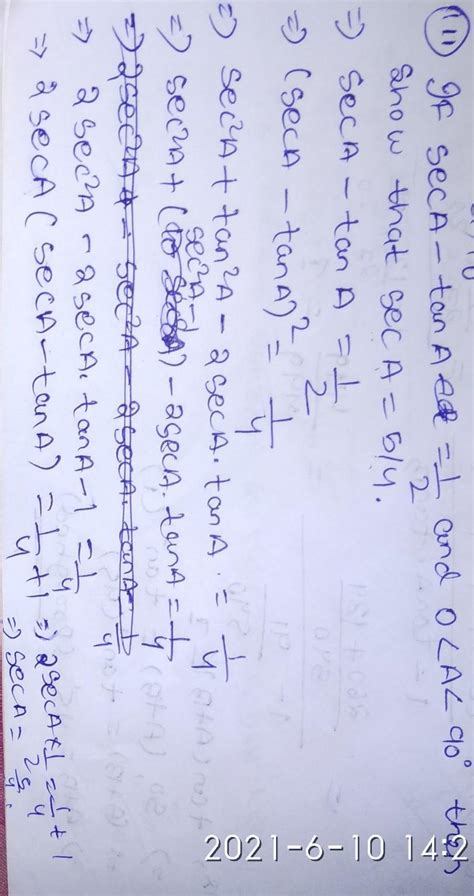 (11) If secA - tanA = 1/2 and 0<A<90° then
show that secA = 5/4.
⇒ secA - tanA = 1/2
⇒ (secA - tanA)² = 1/4
⇒ sec²A + tan²A - 2secA.tanA. = 1/4
⇒ sec²A + (sec²A - 1) - 2secA.tanA = 1/4
⇒ 2sec²A - 2secA.tanA - 1 = 1/4
⇒ 2secA (secA - tanA) = 1/4 + 1 ⇒ 2secA × 1/2 = 1/4 + 1
⇒ secA = 5/4.
2021-6-10 14:2